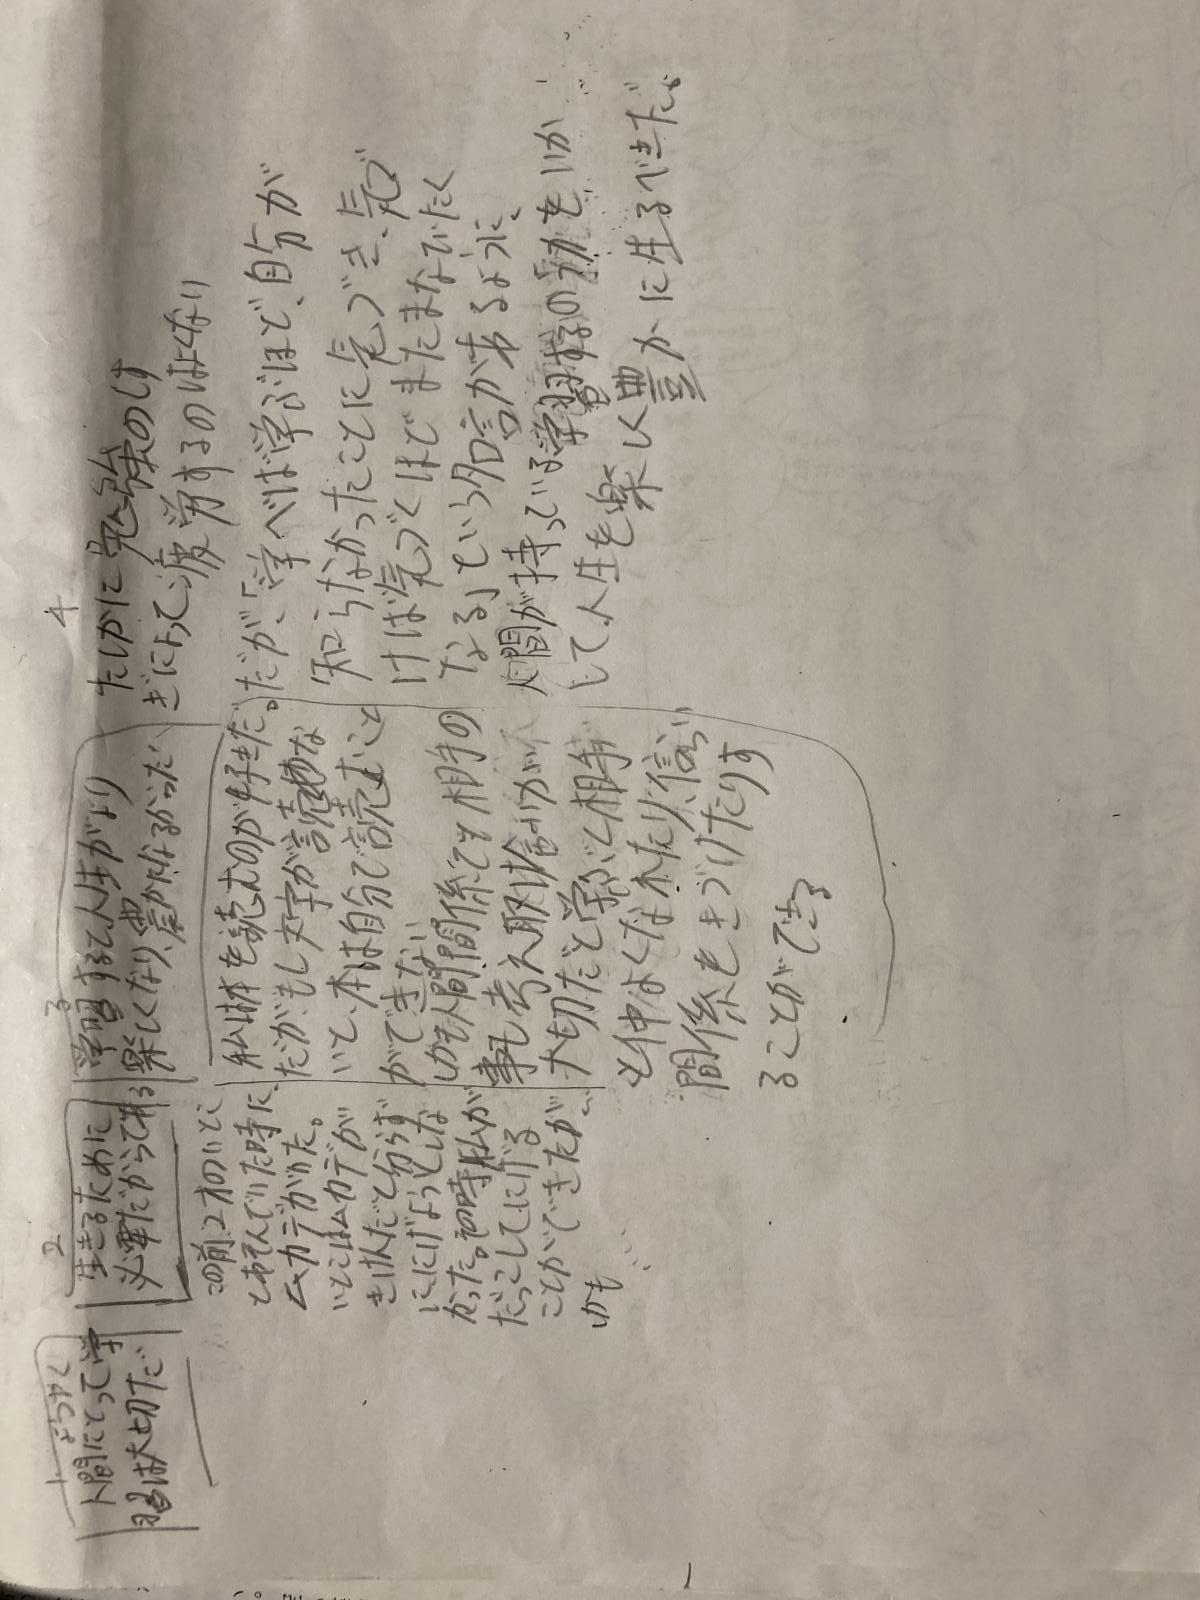 1 ようやく
人間にとって学
習は大切だ
2
生きるために
必要だからである
この前2才のいとこ
とあそんでいた時に、
ムカデがでた。
いとこはムカデが
きけんだと分らず
ににげようとしな
かった。その時私が
だっこしてにげる
ことができたが
かも
3
学習すると人生がより
楽しくなり、豊かになるからだ
私は本を読むのが好きだ。
だが、もし文字が読めな
いと、本は自分で読むこと
ができない
しかも人間関係でも相手の
事も考え取り
大切だと学ぶと相手
と仲よくなれたり、信らい
関係をきづけたりす
ることができる
4
たしかに勉強のしす
ぎによって疲労するのはよくない
だが、「学べば学ぶほど、自分が
知らなかったことに気づき、気づ
けば気づくほどまたまなびたく
なる」という名言があるように、
人間が持っている学習する力をいか
して人生を楽しく豊かに生るべきだ。